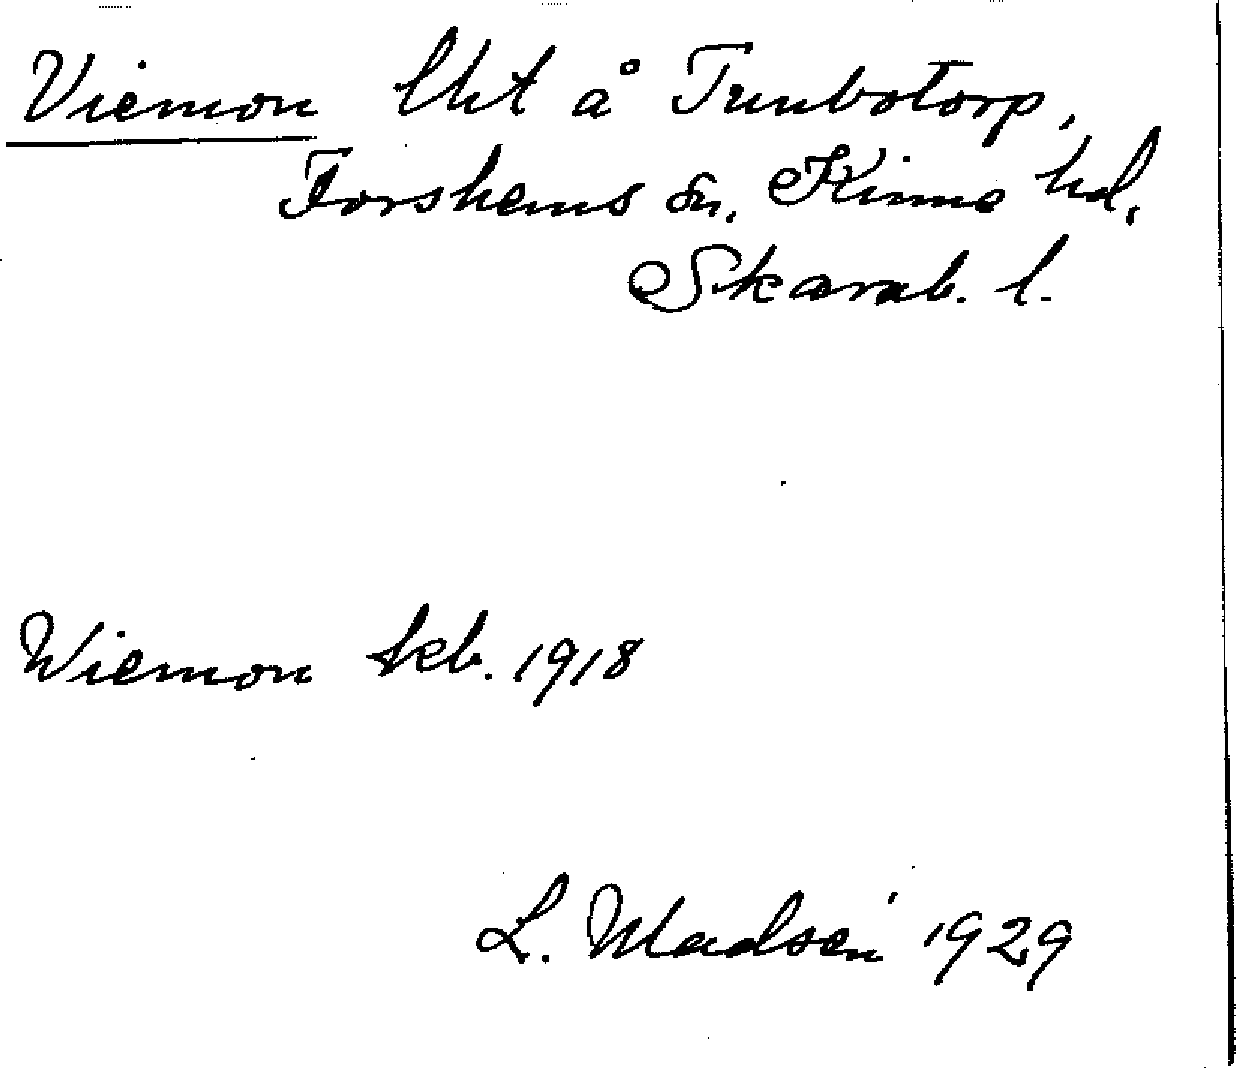 Viemon lht å Trubotorp,
Forshems sn, Kinne hd,
Skarab. l.
Wiemon kb. 1918
L. Madsén 1929